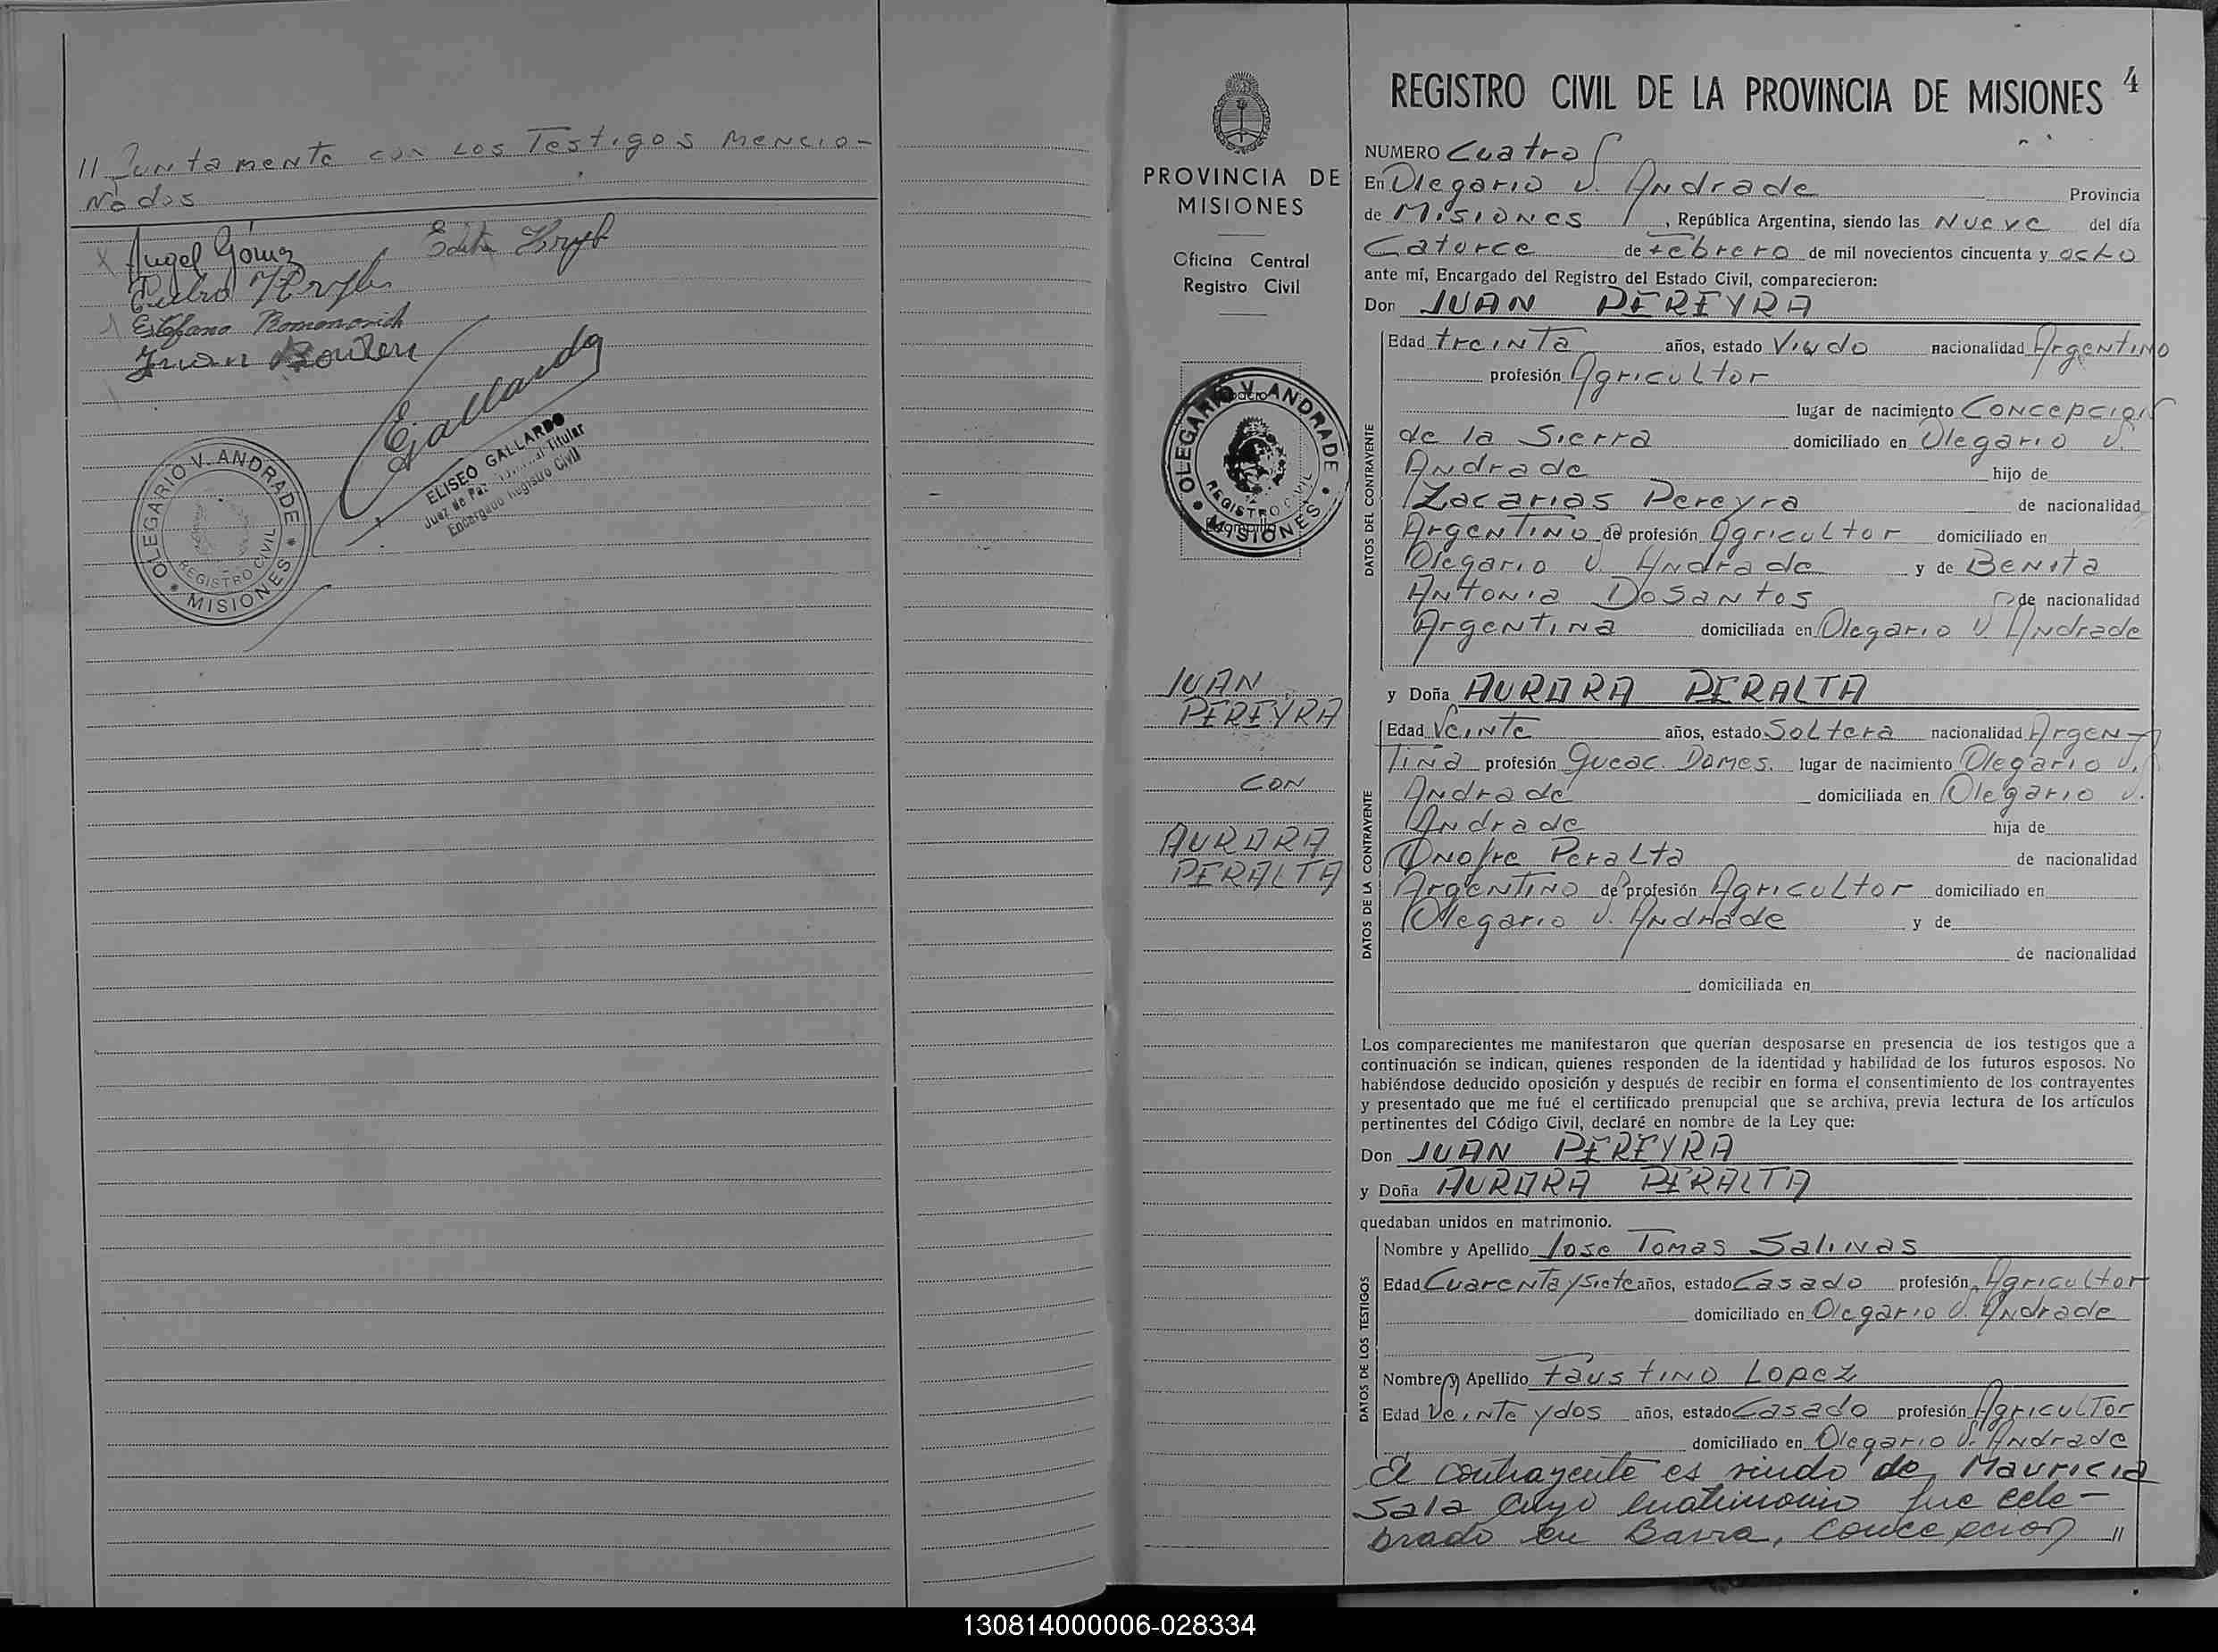 // Juntamente con Los Testigos Mencio-
Nados
Angel Gómez
Pedro
Estefano Romonovich
Juan
Gallardo
ELISEO GALLARDO
Juez de Paz Titular
Encargado Registro Civil
OLEGARIO V. ANDRADE
REGISTRO CIVIL
* MISIONES *
PROVINCIA DE
MISIONES
Oficina Central
Registro Civil
OLEGARIO V. ANDRADE
REGISTRO CIVIL
* MISIONES *
JUAN
PEREYRA
CON
AURORA
PERALTA
REGISTRO CIVIL DE LA PROVINCIA DE MISIONES 4
NUMERO Cuatro
En Olegario V. Andrade Provincia
de Misiones, República Argentina, siendo las Nueve del día
Catorce de Febrero de mil novecientos cincuenta y ocho
ante mí, Encargado del Registro del Estado Civil, comparecieron:
Don JUAN PEREYRA
DATOS DEL CONTRAYENTE
Edad treinta años, estado Viudo nacionalidad Argentino
profesión Agricultor
lugar de nacimiento Concepcion
de la Sierra domiciliado en Olegario V.
Andrade hijo de
Zacarias Pereyra de nacionalidad
Argentino de profesión Agricultor domiciliado en
Olegario V Andrade y de Benita
Antonia Dosantos de nacionalidad
Argentina domiciliada en Olegario V Andrade
y Doña AURORA PERALTA
DATOS DE LA CONTRAYENTE
Edad Veinte años, estado Soltera nacionalidad Argen-
tina profesión Queac. Domes. lugar de nacimiento Olegario V.
Andrade domiciliada en Olegario V.
Andrade hija de
Onofre Peralta de nacionalidad
Argentino de profesión Agricultor domiciliado en
Olegario V. Andrade y de
de nacionalidad
domiciliada en
Los comparecientes me manifestaron que querían desposarse en presencia de los testigos que a
continuación se indican, quienes responden de la identidad y habilidad de los futuros esposos. No
habiéndose deducido oposición y después de recibir en forma el consentimiento de los contrayentes
y presentado que me fué el certificado prenupcial que se archiva, previa lectura de los artículos
pertinentes del Código Civil, declaré en nombre de la Ley que:
Don JUAN PEREYRA
y Doña AURORA PERALTA
quedaban unidos en matrimonio.
DATOS DE LOS TESTIGOS
Nombre y Apellido Jose Tomas Salinas
Edad Cuarenta y Siete años, estado Casado profesión Agricultor
domiciliado en Olegario V. Andrade
Nombre y Apellido Faustino Lopez
Edad Veinte y dos años, estado Casado profesión Agricultor
domiciliado en Olegario V. Andrade
El contrayente es viudo de Mauricia
Sala cuyo matrimonio fue cele-
brado en Barra, Concepcion //
130814000006-028334